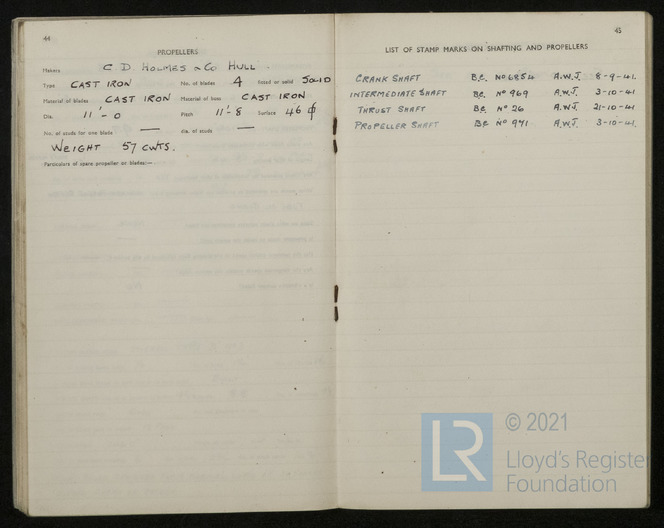 44
PROPELLERS
Makers C. D. HOLMES & Co HULL.
Type CAST IRON No. of blades 4 fitted or solid SOLID
Material of blades CAST IRON Material of boss CAST IRON
Dia. 11' - 0 Pitch 11'-8 Surface 46
No. of studs for one blade — dia. of studs —
WEIGHT 57 CWTS.
Particulars of spare propeller or blades:—
45
LIST OF STAMP MARKS ON SHAFTING AND PROPELLERS
CRANK SHAFT B.C. No 6854 A.W.J. 8-9-41.
INTERMEDIATE SHAFT B.C. No 969 A.W.J. 3-10-41
THRUST SHAFT B.C. No 26 A.W.J. 21-10-41
PROPELLER SHAFT B.C No 971 A.W.J. 3-10-41.
LR
© 2021
Lloyd's Register
Foundation